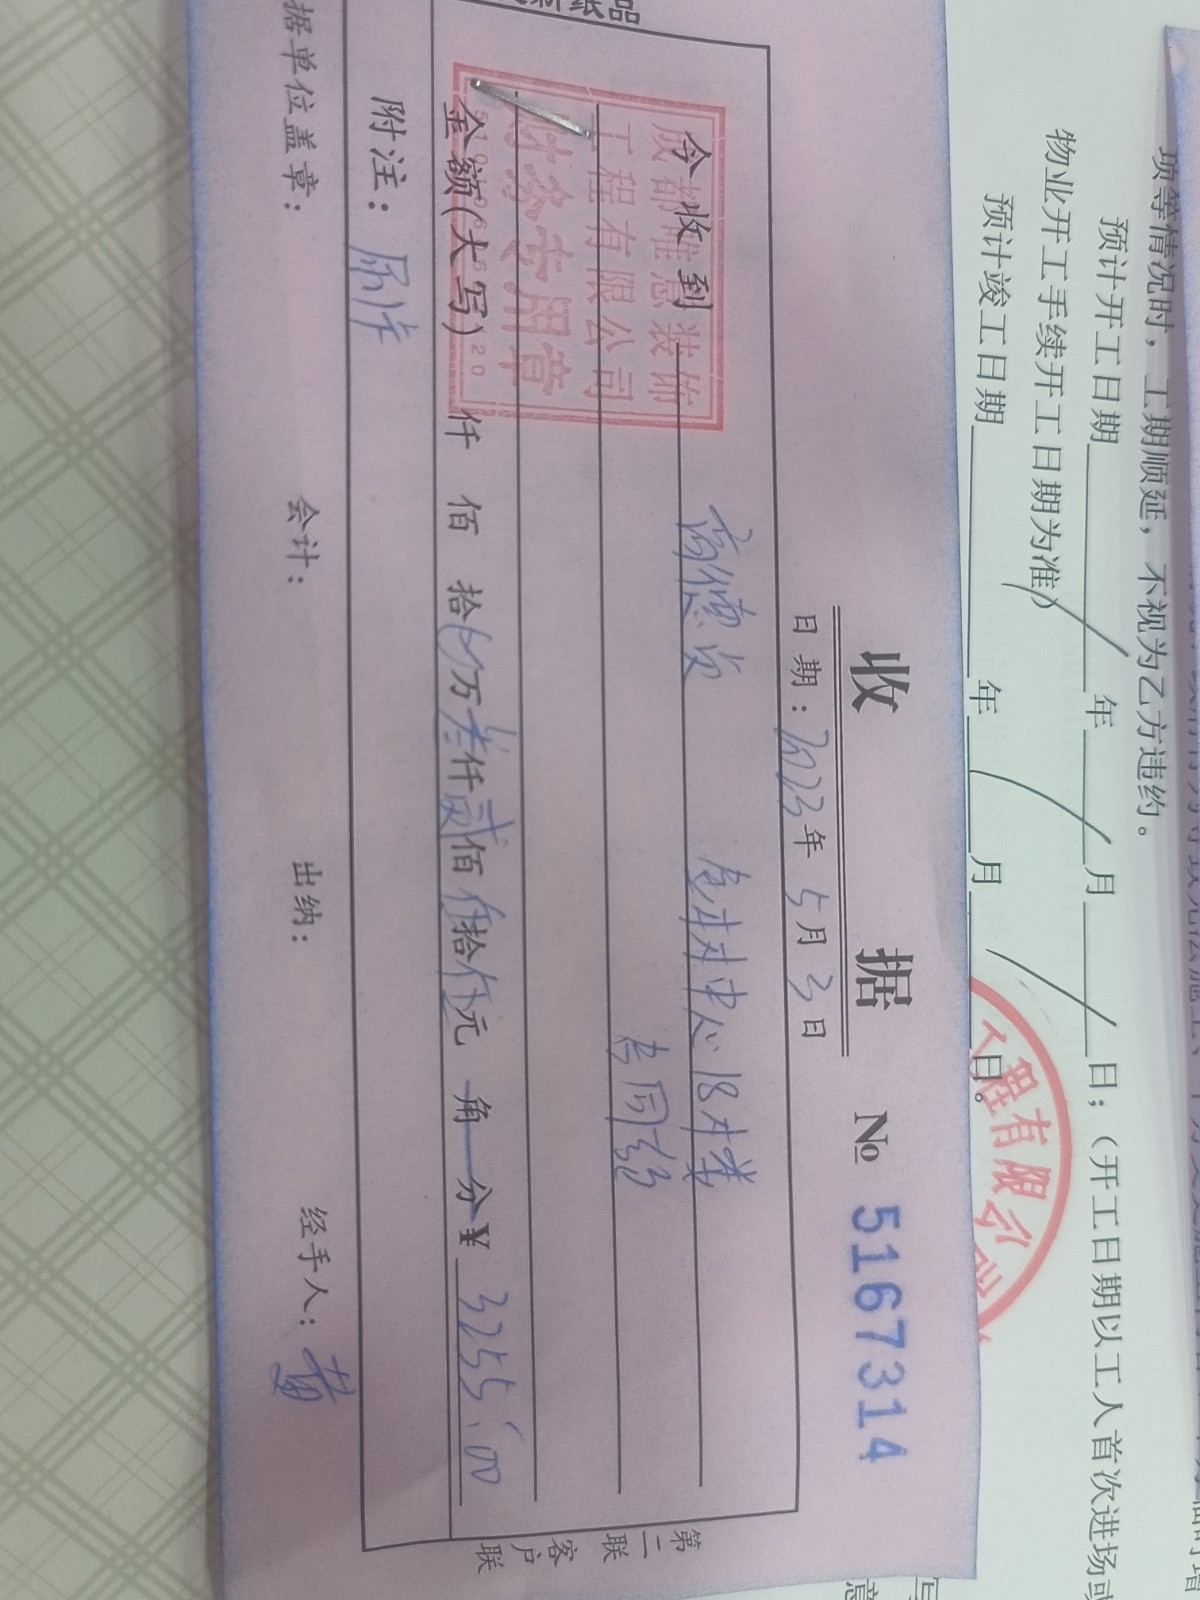 项等情况时，工期顺延，不视为乙方违约。
预计开工日期 年 月 日；（开工日期以工人首次进场或
物业开工手续开工日期为准）
预计竣工日期 年 月 日。
工程有限公司
收 据 № 5167314
日期：2023年5月3日
今收到 高德贞 龙湖中心18楼
合同款
金额(大写) 仟 佰 拾 万叁仟贰佰伍拾伍元 角 分¥ 3255.00
附注：刷卡
据单位盖章： 会计： 出纳： 经手人：黄
第二联 客户联
成都雅意装饰
工程有限公司
财务专用章
纸品